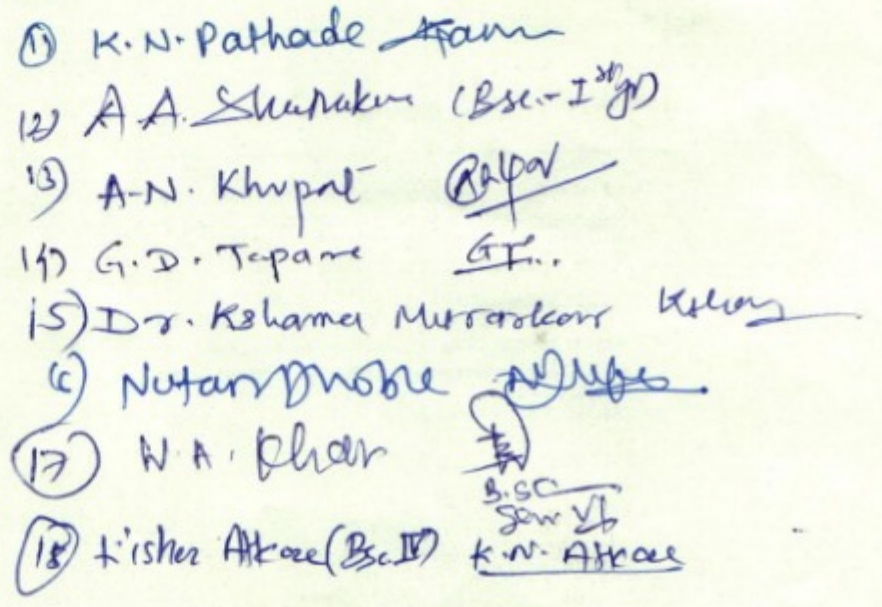 11) K. N. Pathade
12) A A. (Bsc.-I st yr)
13) A-N. Khupat
14) G. D. Tapare GT...
15) Dr. Kshama Murarkar
16) Nutan Dhoble
17) W. A. Khan
B.SC
Sem VI
18) Kishor Atkare (Bsc. IV) K.N. Atkare